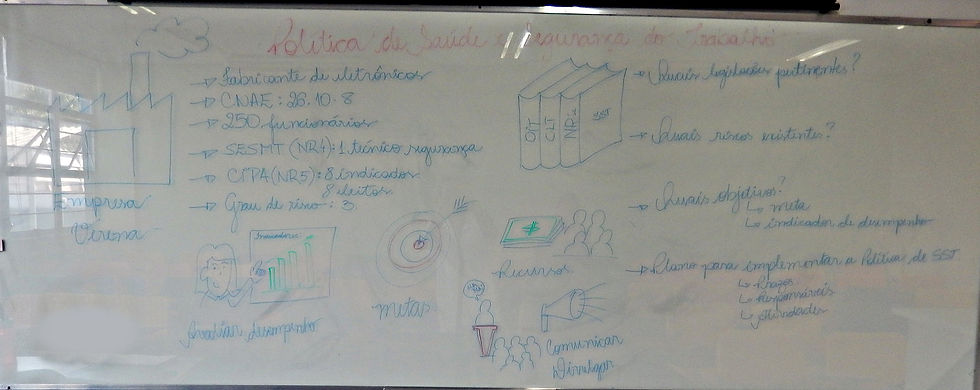 Política de Saúde e Segurança do Trabalho
Fabricante de eletrônicos
CNAE: 26.10-8
250 funcionários
SESMT (NR4): 1 técnico segurança
CIPA (NR5): 8 indicados
8 eleitos
Grau de risco: 3
Empresa
Virona
OIT
CLT
NR's
SST
Quais legislações pertinentes?
Quais riscos existentes?
Quais objetivos?
meta
indicador de desempenho
Plano para implementar a Política de SST
Prazos
Responsáveis
Atividades
Indicadores
Avaliar desempenho
metas
Recursos
Comunicar
Divulgar